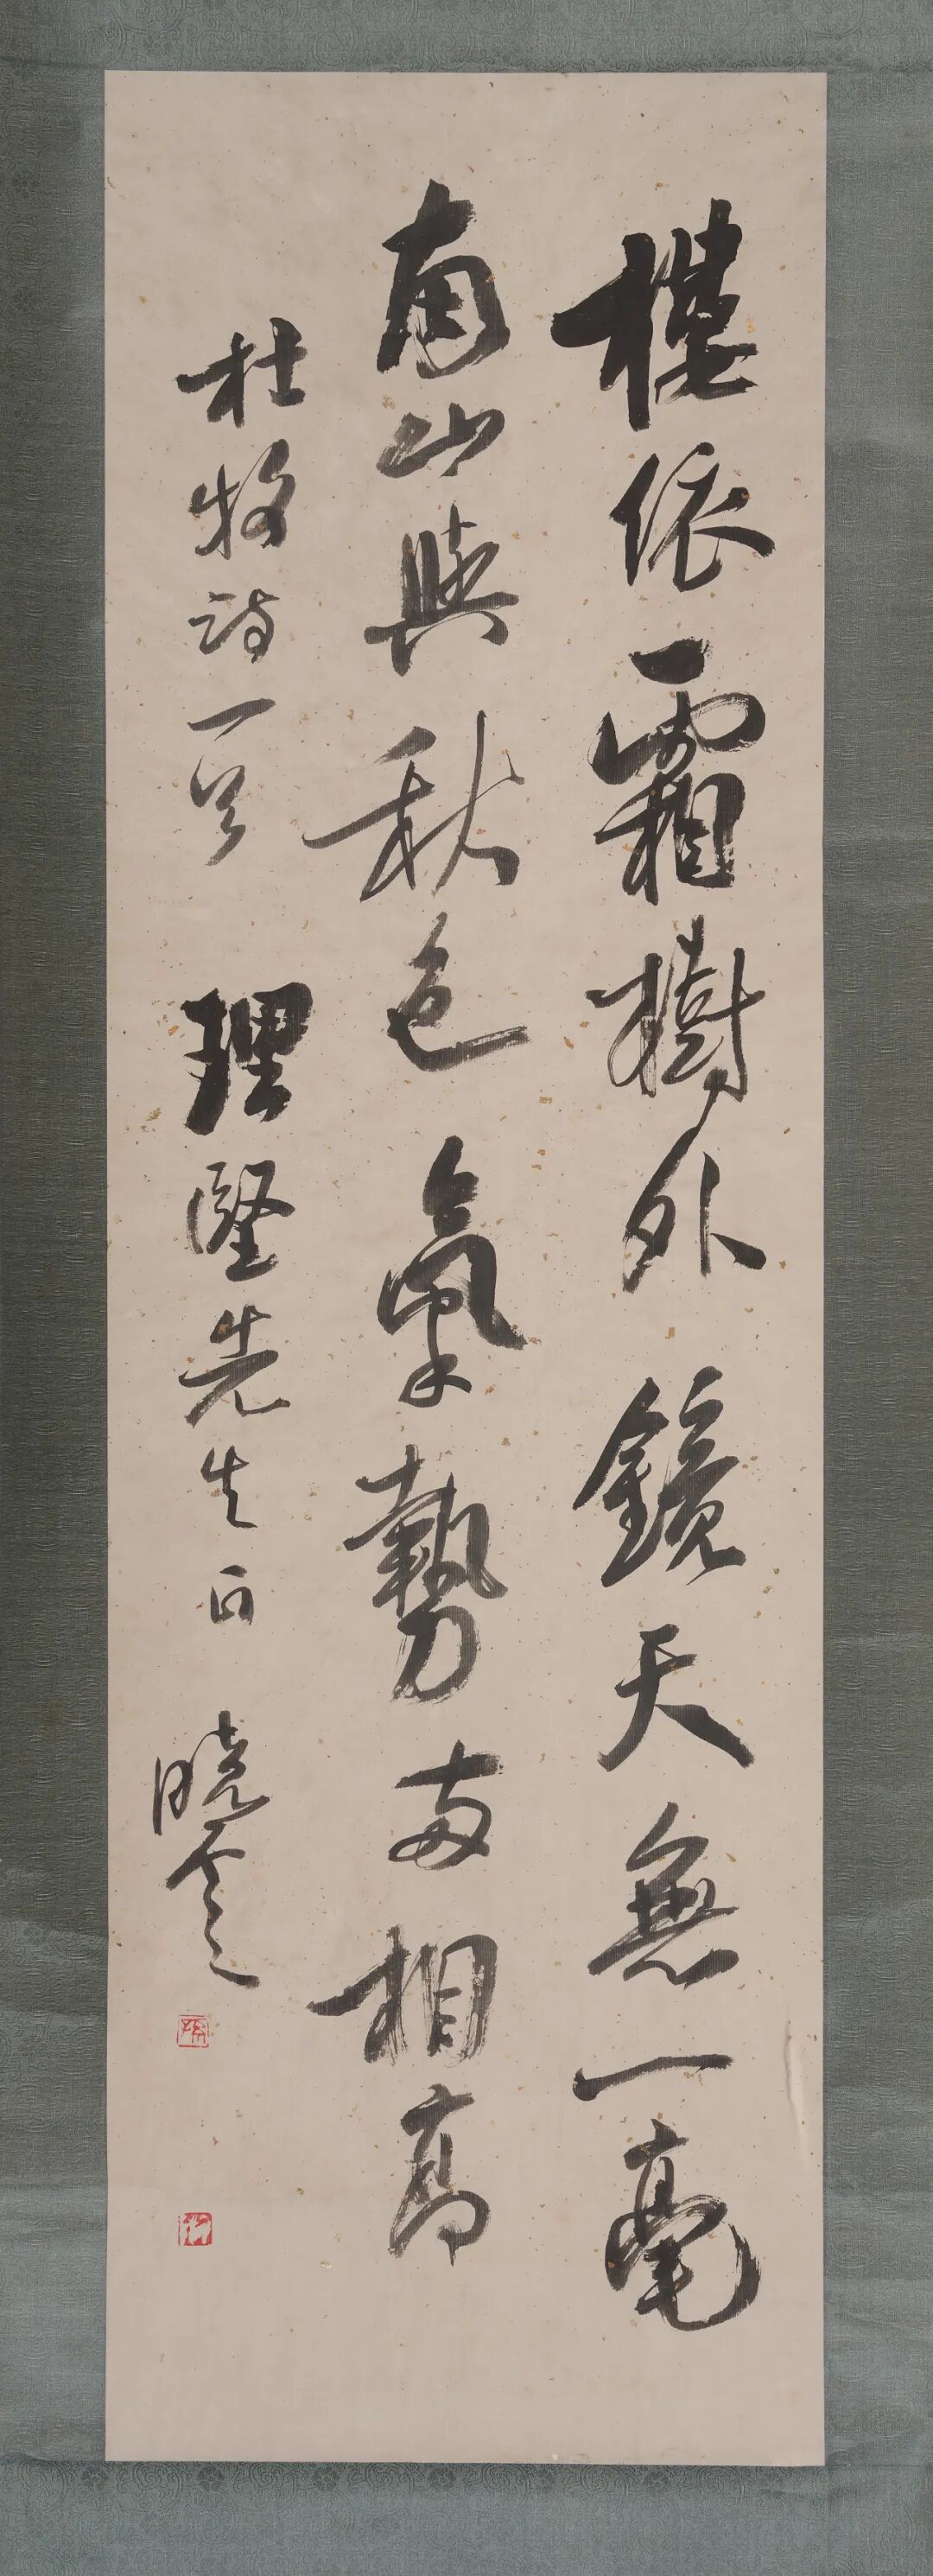 樓倚霜樹外鏡天無一毫
南山與秋色氣勢兩相高
杜牧詩一首 理堅先生正 曉雲